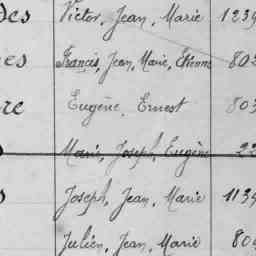 des Victor, Jean, Marie 1239
es Francis, Jean, Marie, Etienne 802
re Eugène, Ernest 803
Marie, Joseph, Eugène 22
s Joseph, Jean, Marie 1139
Julien, Jean, Marie 804